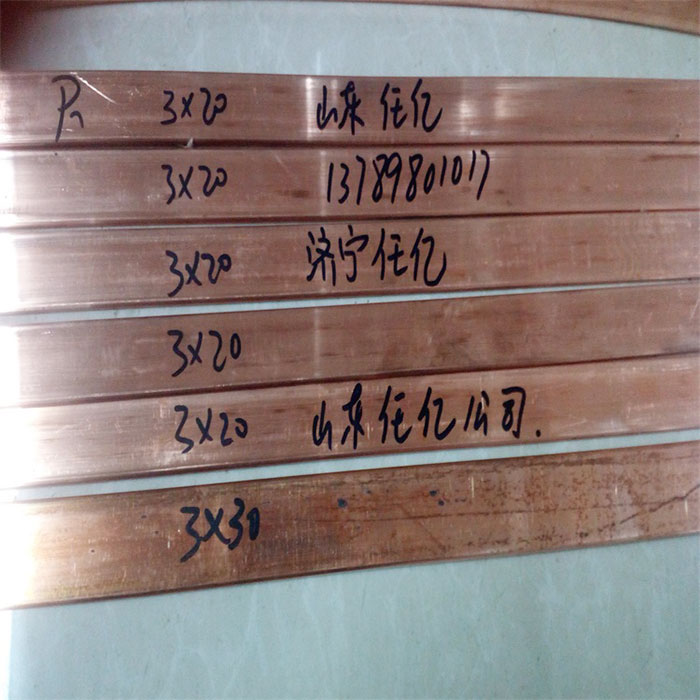 3×20 山东任亿
3×20 13789801017
3×20 济宁任亿
3×20
3×20 山东任亿公司.
3×30